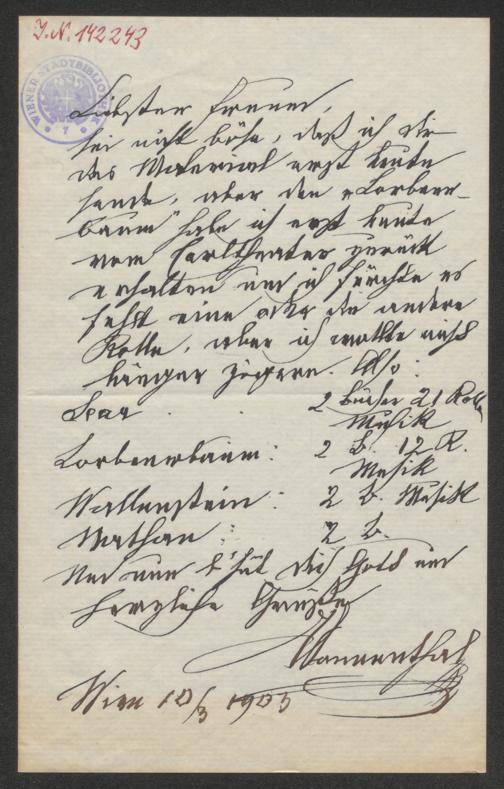 J.N. 142243
WIENER STADTBIBLIOTHEK
7
Liebster Freund,
sei nicht böse, daß ich dir
das Material erst heute
sende, aber den „Lorbeer-
baum" habe ich erst heute
vom Carltheater zurück
erhalten und ich fürchte es
fehlt eine oder die andere
Rolle, aber ich wollte nicht
länger zögern. Also:
Lear . . 2 Bücher 21 Rolle
Musik
Lorbeerbaum: 2 B. 12 R.
Musik
Wallenstein: 2 B. Musik
Nathan: 2 B.
Und nun b'hüt dich Gott und
herzliche Grüße
Sonnenthal
Wien 10/3 1903